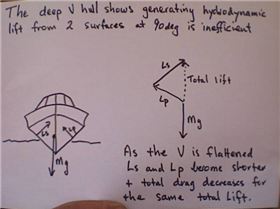 The deep V hull shows generating hydrodynamic
lift from 2 surfaces at 90deg is inefficient
Ls
Total lift
Lp
Mg
Ls
Lp
Mg
As the V is flattened
Ls and Lp become shorter
+ total drag decreases for
the same total Lift.